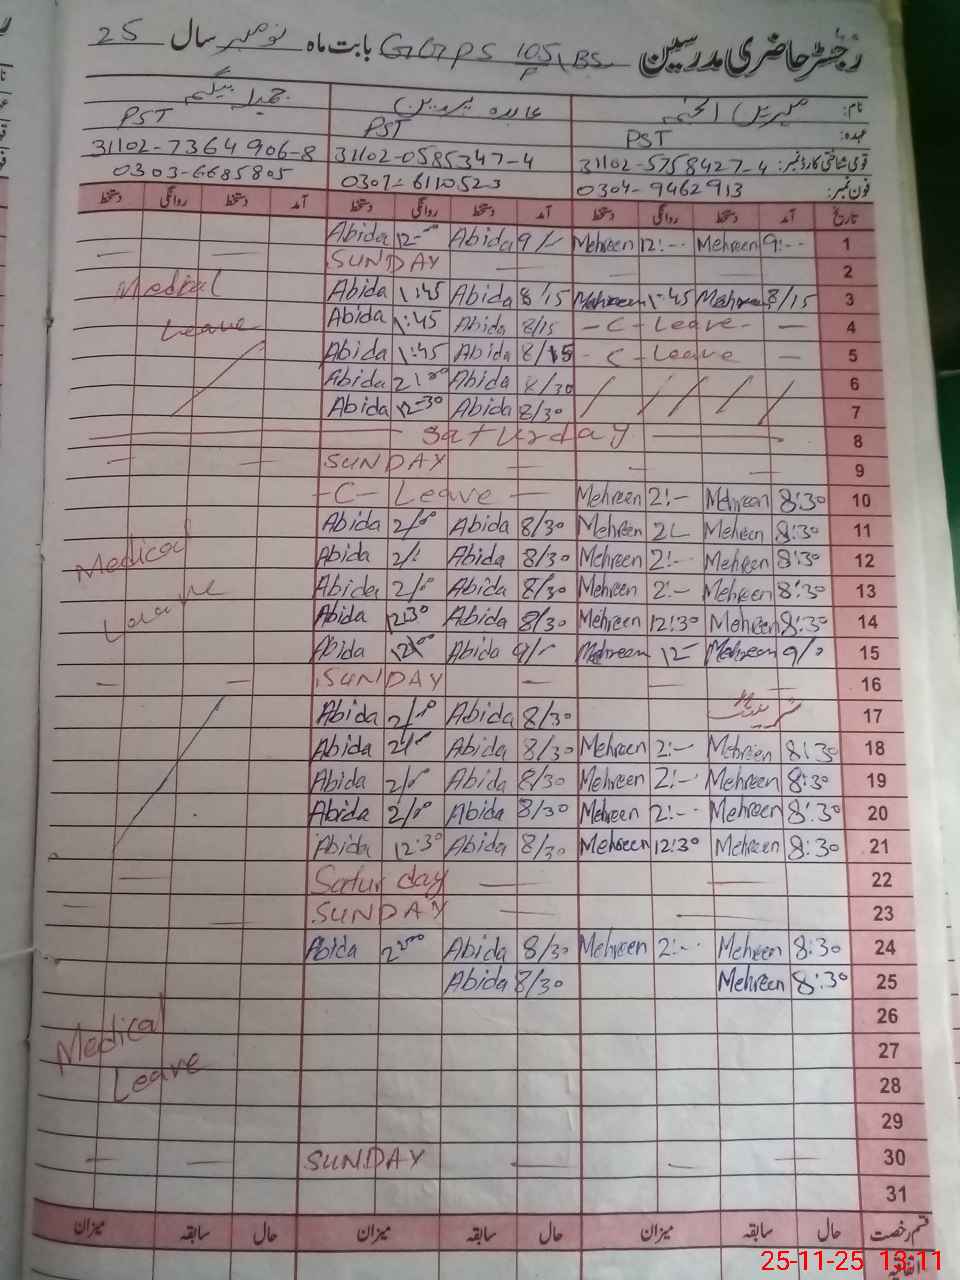 رجسٹر حاضری مدرسین GGPS 105/P BS بابت ماہ نومبر سال 25
نام: مہرین انجم عابدہ پروین جمیلہ بیگم
عہدہ: PST PST PST
قومی شناختی کارڈ نمبر: 31102-5758427-4 31102-0585347-4 31102-7364906-8
فون نمبر: 0304-9462913 0307-6110523 0303-6685805
تاریخ آمد دستخط روانگی دستخط آمد دستخط روانگی دستخط آمد دستخط روانگی دستخط
Abida 12-00 Abida 9/- Mehreen 12:-- Mehreen 9:-- 1
— — SUNDAY — — — 2
Medical Abida 1:45 Abida 8/15 Mehreen 1:45 Mehreen 8/15 3
Leave Abida 1:45 Abida 8/15 - C - Leave - — 4
Abida 1:45 Abida 8/15 - C - Leave — 5
Abida 2:00 Abida 8/30 / / / / 6
Abida 12-30 Abida 8/30 7
Saturday 8
— — SUNDAY — — — 9
-C- Leave — Mehreen 2:- Mehreen 8:30 10
Abida 2/00 Abida 8/30 Mehreen 2:- Mehreen 8:30 11
Medical Abida 2/: Abida 8/30 Mehreen 2:- Mehreen 8:30 12
Abida 2/00 Abida 8/30 Mehreen 2:- Mehreen 8:30 13
Leave Abida 12:30 Abida 8/30 Mehreen 12:30 Mehreen 8:30 14
Abida 12/00 Abida 9/0 Mehreen 12- Mehreen 9/0 15
— — SUNDAY — — — 16
Abida 2/00 Abida 8/30 17
Abida 2/00 Abida 8/30 Mehreen 2:- Mehreen 8:30 18
Abida 2/0 Abida 8/30 Mehreen 2:-- Mehreen 8:30 19
Abida 2/00 Abida 8/30 Mehreen 2:-- Mehreen 8:30 20
Abida 12:30 Abida 8/30 Mehreen 12:30 Mehreen 8:30 21
— Saturday — — 22
— — SUNDAY — — 23
Abida 2:00 Abida 8/30 Mehreen 2:-- Mehreen 8:30 24
Abida 8/30 Mehreen 8:30 25
26
Medical 27
Leave 28
29
— — SUNDAY — — — 30
31
قسم رخصت حال سابقہ میزان حال سابقہ میزان حال سابقہ میزان
اتفاقیہ
25-11-25 13:11